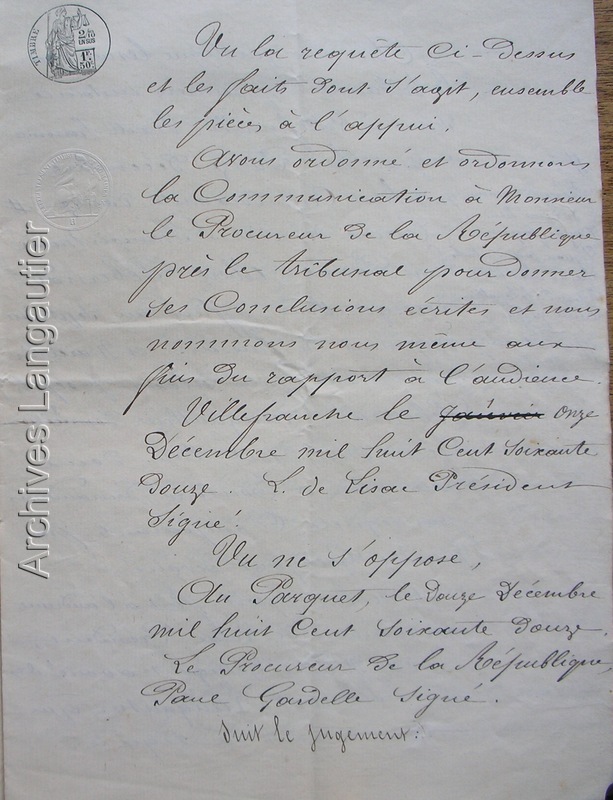 TIMBRE
2/10 EN SUS
1F
50C
Vu la requête ci-Dessus
et les faits dont s'agit, ensemble
les pièces à l'appui,
Avons ordonné et ordonnons
la Communication à Monsieur
le Procureur de la République
près le tribunal pour Donner
ses Conclusions écrites et nous
nommons nous même aux
fins du rapport à l'audience.
Villefranche le Janvier onze
Décembre mil huit Cent Soixante
Douze. L. de Lisac Président
Signé.
Vu ne s'oppose,
Au Parquet, le Douze Décembre
mil huit Cent Soixante Douze.
Le Procureur de la République,
Paul Gardelle Signé.
Suit le Jugement:
Archives Langautier